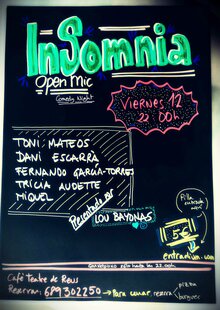 InSomnia
Open Mic
Comedy Night
VIERNES 12
22:00h
TONI MATEOS
DANI ESCARRÀ
FERNANDO GARCÍA-TORRES
TRÍCIA AUDETTE
MIQUEL
Presentado por
LOU BAYONAS
5€
entradium.com
Café Teatre de Reus
Reservas: 689 302250 → Para cenar, reserva
pizza
burguer